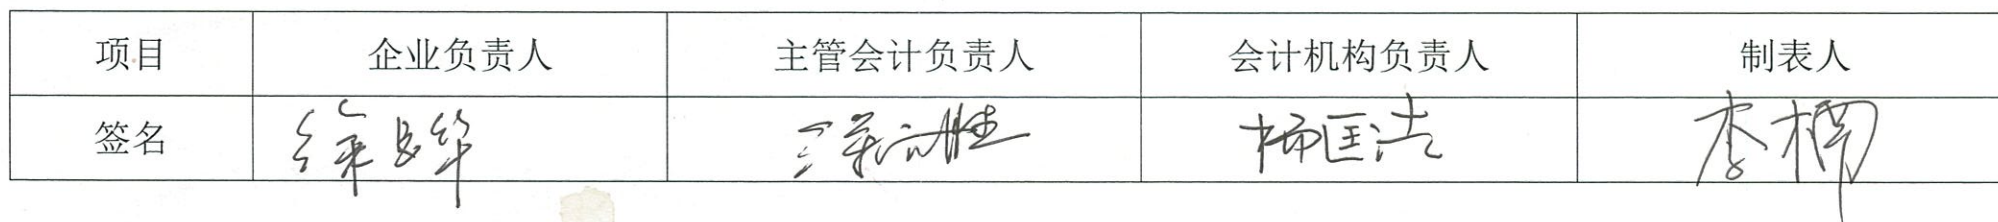 项目 企业负责人 主管会计负责人 会计机构负责人 制表人
签名 李楠